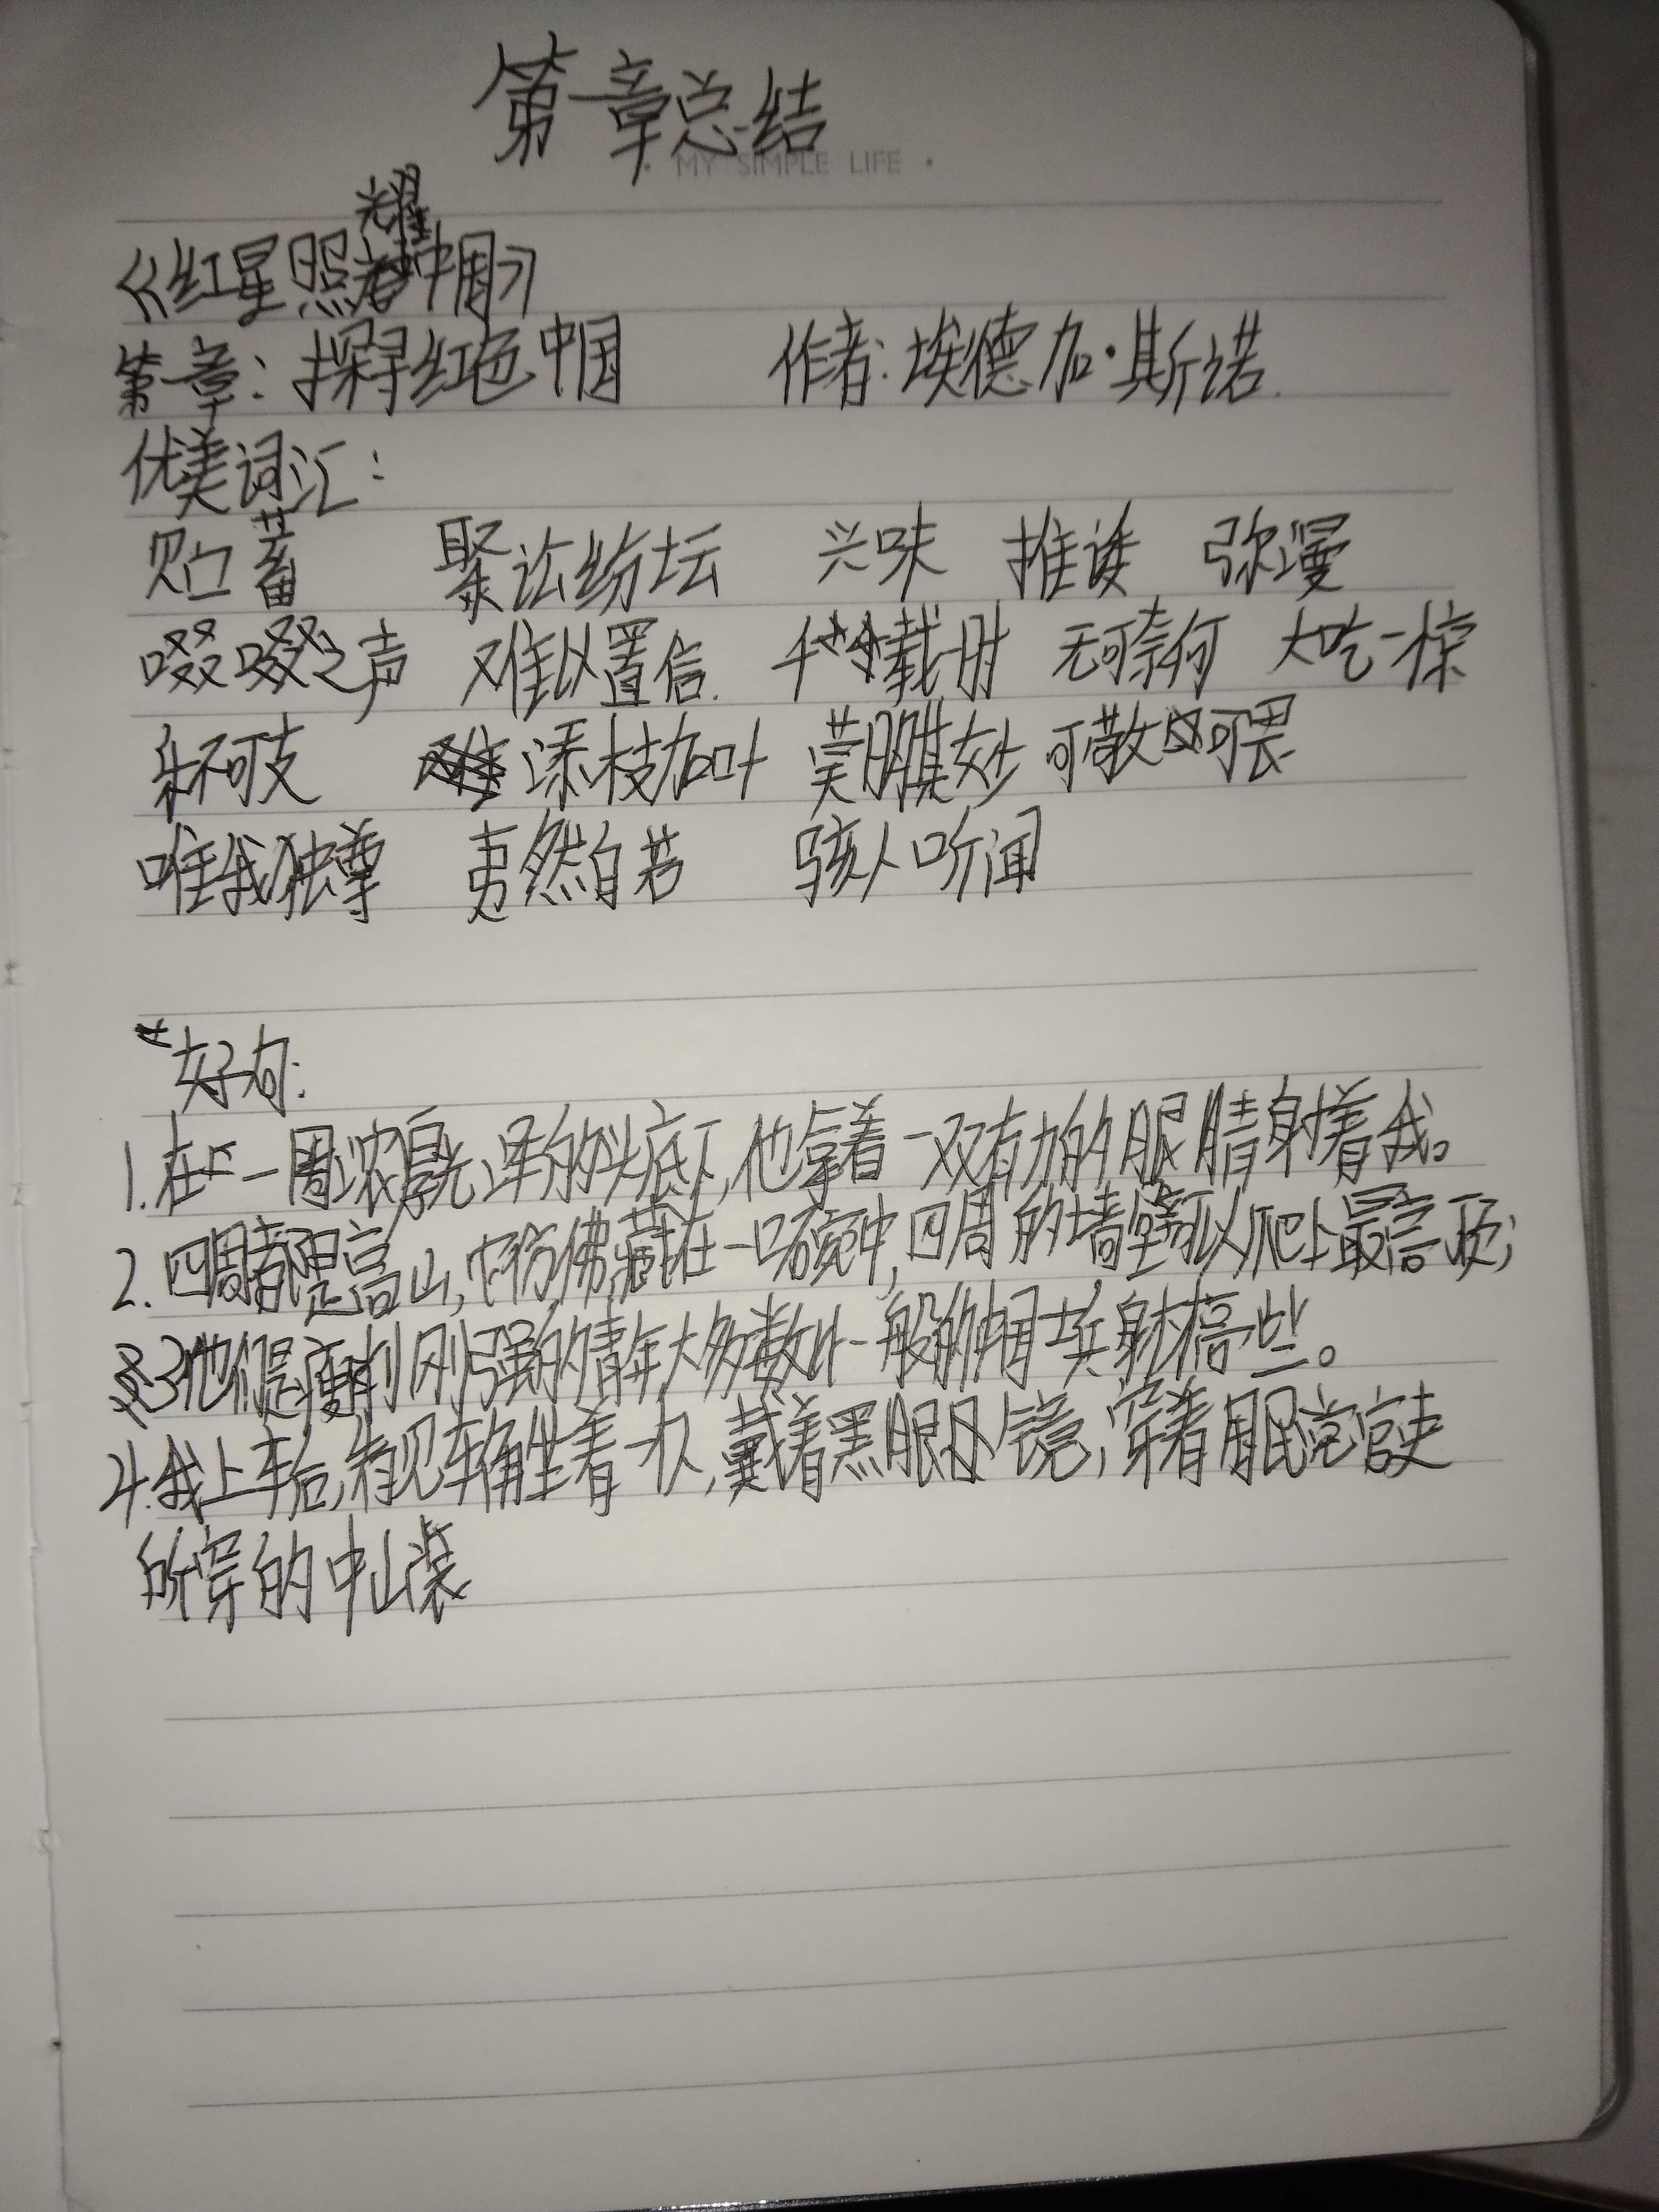 第一章总结
MY SIMPLE LIFE
《红星照耀中国》
第一章:探寻红色中国 作者:埃德加·斯诺.
优美词汇:
贮蓄 聚讼纷坛 兴味 推诿 弥漫
啜啜之声 难以置信. 千载一时 无可奈何 大吃一惊
乐不可支 添枝加叶 莫明其妙 可敬可畏
唯我独尊 夷然自若 骇人听闻
好句:
1.在一圈浓晕的头底下,他拿着一双有力的眼睛射着我。
2.四周都是高山,它仿佛藏在一口碗中,四周的墙壁可以爬上最高顶;
3他们是瘦削刚强的青年大多数比一般的中国士兵身材高些。
4.我上车后,看见车角坐着一个人,戴着黑眼镜,穿着国民党官吏
所穿的中山装